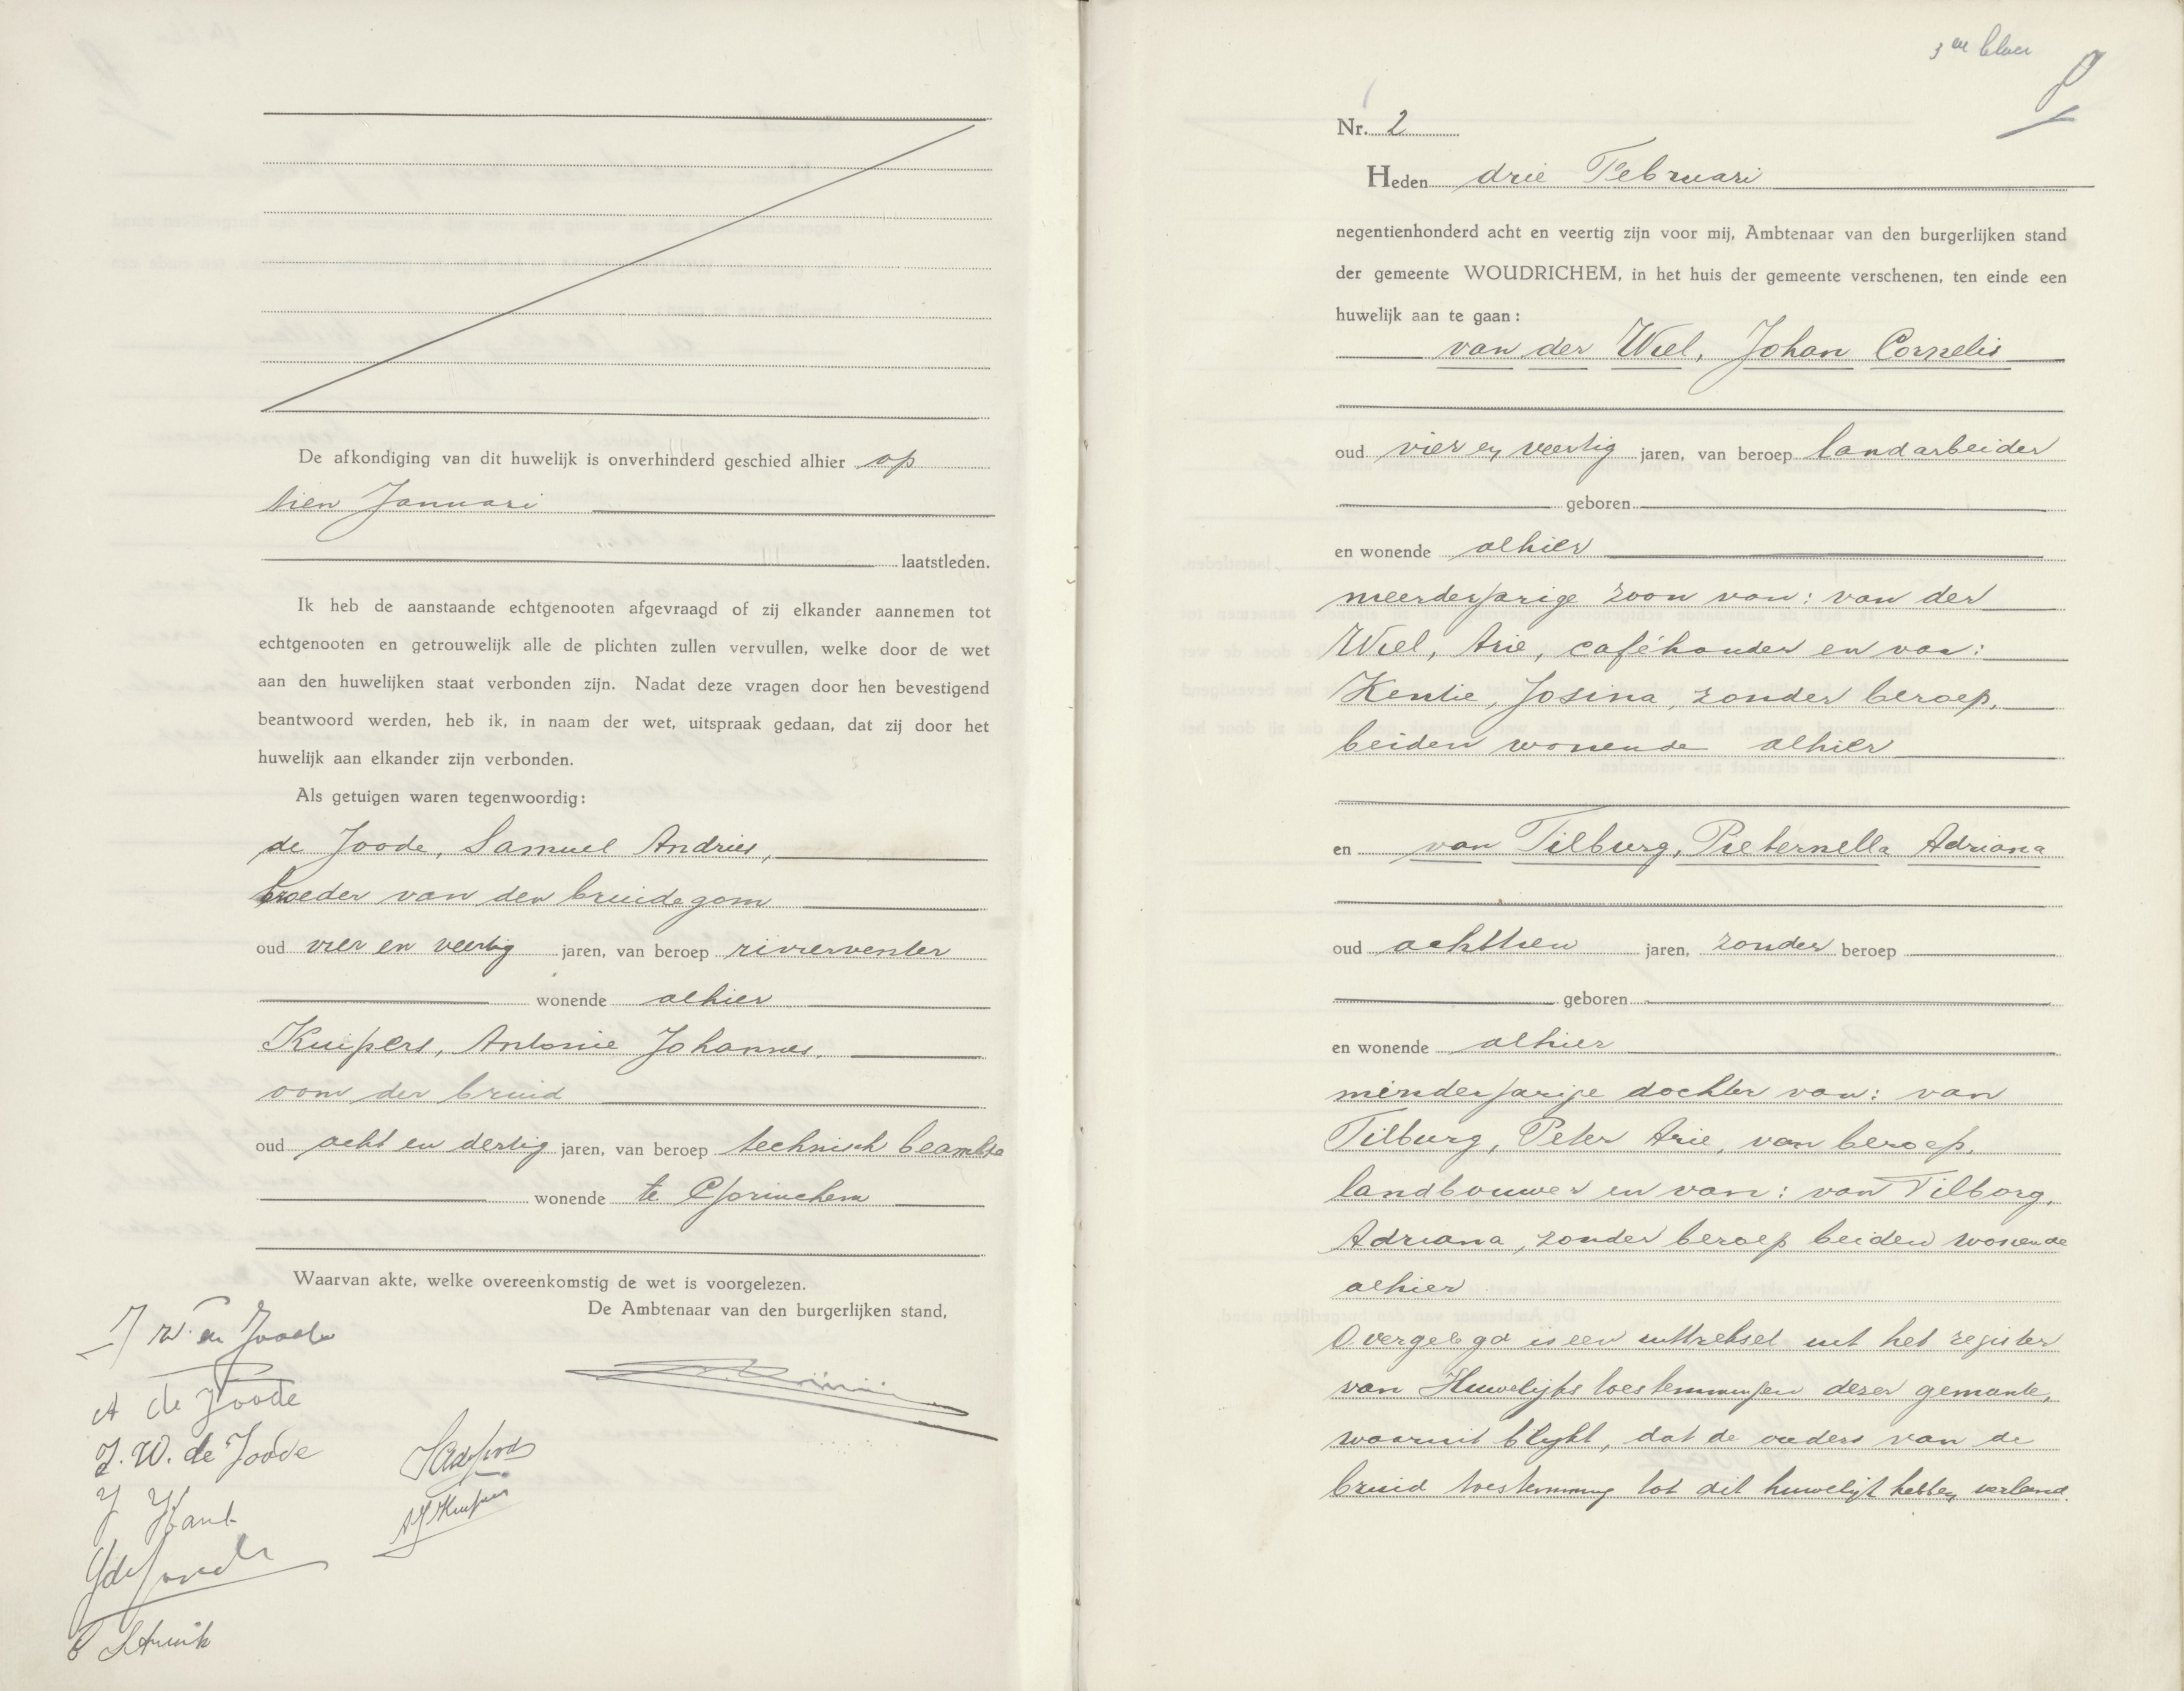 De afkondiging van dit huwelijk is onverhinderd geschied alhier op
tien Januari
laatstleden.
Ik heb de aanstaande echtgenooten afgevraagd of zij elkander aannemen tot
echtgenooten en getrouwelijk alle de plichten zullen vervullen, welke door de wet
aan den huwelijken staat verbonden zijn. Nadat deze vragen door hen bevestigend
beantwoord werden, heb ik, in naam der wet, uitspraak gedaan, dat zij door het
huwelijk aan elkander zijn verbonden.
Als getuigen waren tegenwoordig:
de Joode, Samuel Andries,
broeder van den bruidegom
oud vier en veertig jaren, van beroep rivierventer
wonende alhier
Kuipers, Antonie Johannes,
oom der bruid
oud acht en dertig jaren, van beroep technisch beambte
wonende te Gorinchem
Waarvan akte, welke overeenkomstig de wet is voorgelezen.
De Ambtenaar van den burgerlijken stand,
A de Joode
J. W. de Joode
AJ Kuipers
3en
Nr. 2
Heden drie Februari
negentienhonderd acht en veertig zijn voor mij, Ambtenaar van den burgerlijken stand
der gemeente WOUDRICHEM, in het huis der gemeente verschenen, ten einde een
huwelijk aan te gaan:
van der Wiel, Johan Cornelis
oud vier en veertig jaren, van beroep landarbeider
geboren
en wonende alhier
meerderjarige zoon van: van der
Wiel, Arie, caféhouder en van:
Kentie, Josina, zonder beroep,
beiden wonende alhier
en van Tilburg, Pieternella Adriana
oud achttien jaren, zonder beroep
geboren
en wonende alhier
minderjarige dochter van: van
Tilburg, Peter Arie, van beroep,
landbouwer en van: van Tilborg,
Adriana, zonder beroep beiden wonende
alhier
Overgelegd is een uittreksel uit het register
van Huwelijks toestemmingen dezer gemeente,
waaruit blijkt, dat de ouders van de
bruid toestemming tot dit huwelijk hebben verleend.